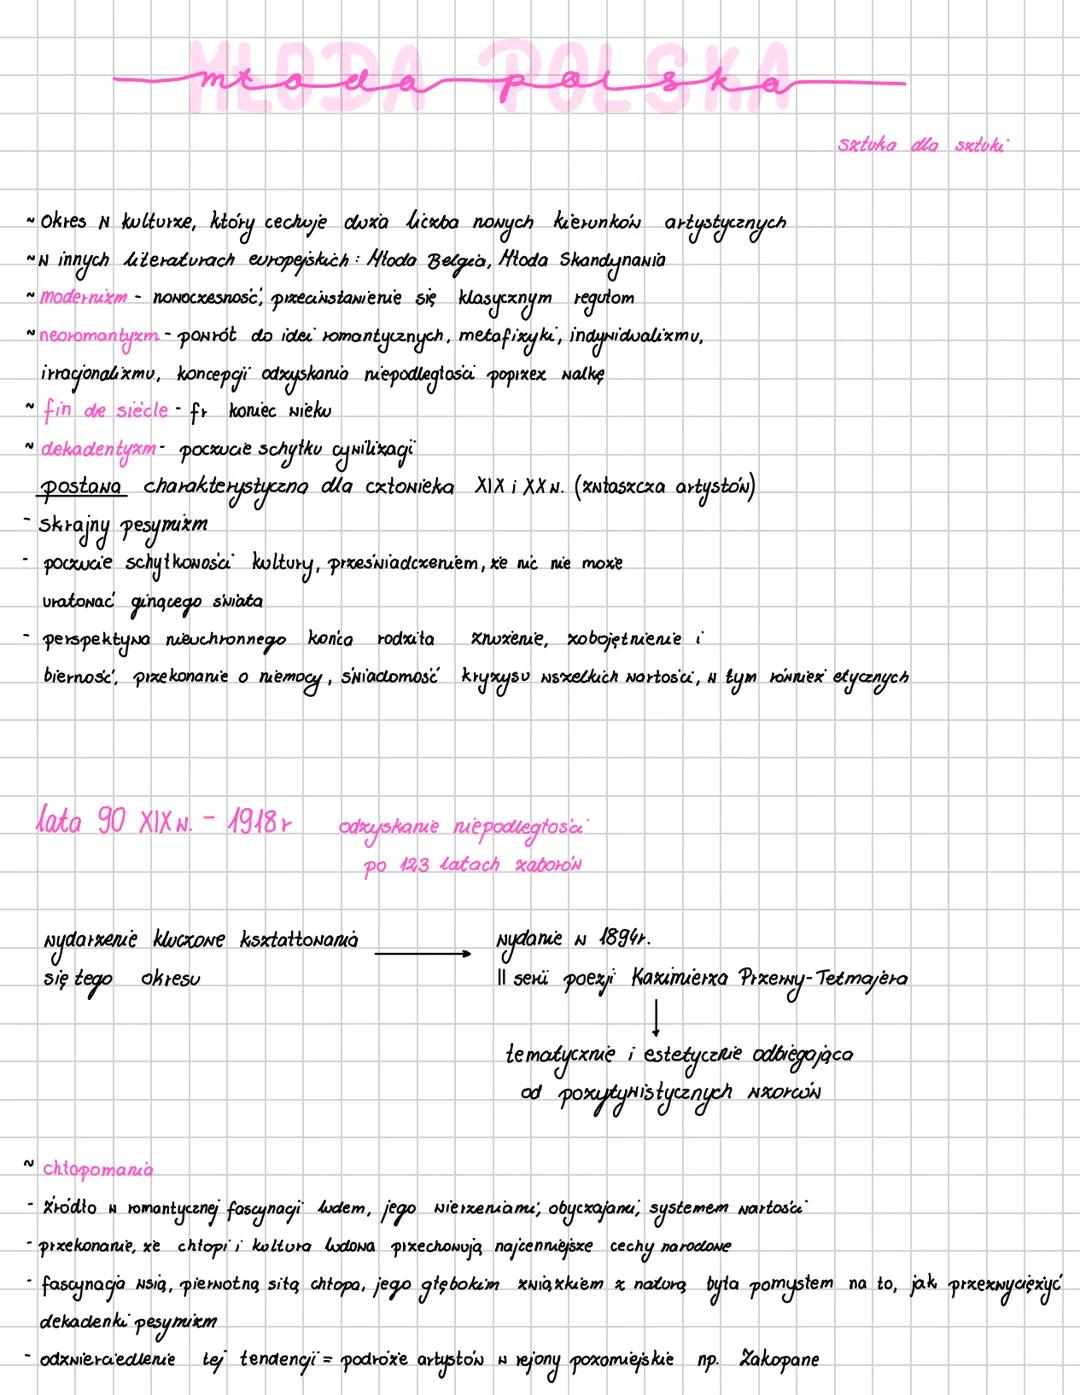 MŁODA POLSKA
młoda polska
sztuka dla sztuki
~ Okres w kulturze, który cechuje duża liczba nowych kierunków artystycznych
~ W innych literaturach europejskich : Młoda Belgia, Młoda Skandynawia
~ modernizm - nowoczesność, przeciwstawienie się klasycznym regułom
~ neoromantyzm - powrót do idei romantycznych, metafizyki, indywidualizmu,
irracjonalizmu, koncepcji odzyskania niepodległości poprzez walkę
~ fin de siècle - fr koniec wieku
~ dekadentyzm - poczucie schyłku cywilizacji
postawa charakterystyczna dla człowieka XIX i XX w. (zwłaszcza artystów)
- skrajny pesymizm
- poczucie schyłkowości kultury, przeświadczeniem, że nic nie może
uratować ginącego świata
- perspektywa nieuchronnego końca rodziła znużenie, zobojętnienie i
bierność, przekonanie o niemocy, świadomość kryzysu wszelkich wartości, w tym również etycznych
lata 90 XIX w. - 1918 r
odzyskanie niepodległości
po 123 latach zaborów
wydarzenie kluczowe kształtowania
się tego okresu
wydanie w 1894r.
II serii poezji Kazimierza Przerwy-Tetmajera
tematycznie i estetycznie odbiegająca
od pozytywistycznych wzorców
~ chłopomania
- źródło w romantycznej fascynacji ludem, jego wierzeniami, obyczajami, systemem wartości
- przekonanie, że chłopi i kultura ludowa przechowują najcenniejsze cechy narodowe
- fascynacja wsią, pierwotną siłą chłopa, jego głębokim związkiem z naturą była pomysłem na to, jak przezwyciężyć
dekadenki pesymizm
- odzwierciedlenie tej tendencji = podróże artystów w rejony pozomiejskie np. Zakopane